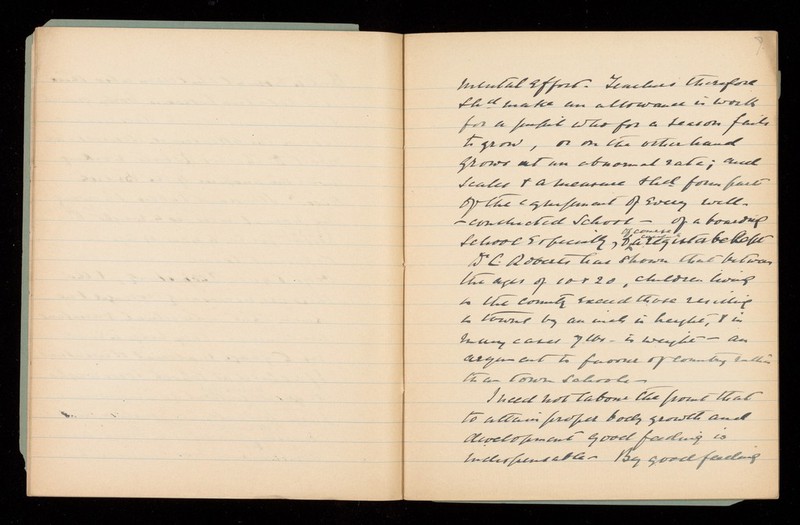 9
mental effort. Teachers therefore
shd make an allowance in work
for a pupil who for a season fails
to grow, or on the other hand
grows at an abnormal rate; and
scales & a measure shd form part
of the equipment of every well-
-conducted School - of a boarding
School especially, & a register be kept
of course
Dr C. Roberts has shown that between
the ages of 10 & 20, children living
in the country exceed those residing
in towns by an inch in height, & in
many cases 7 lbs - in weight - an
argument in favour of country rather
than town Schools -
I need not labour the point that
to attain proper body growth and
development good feeding is
indispensable - By good feeding